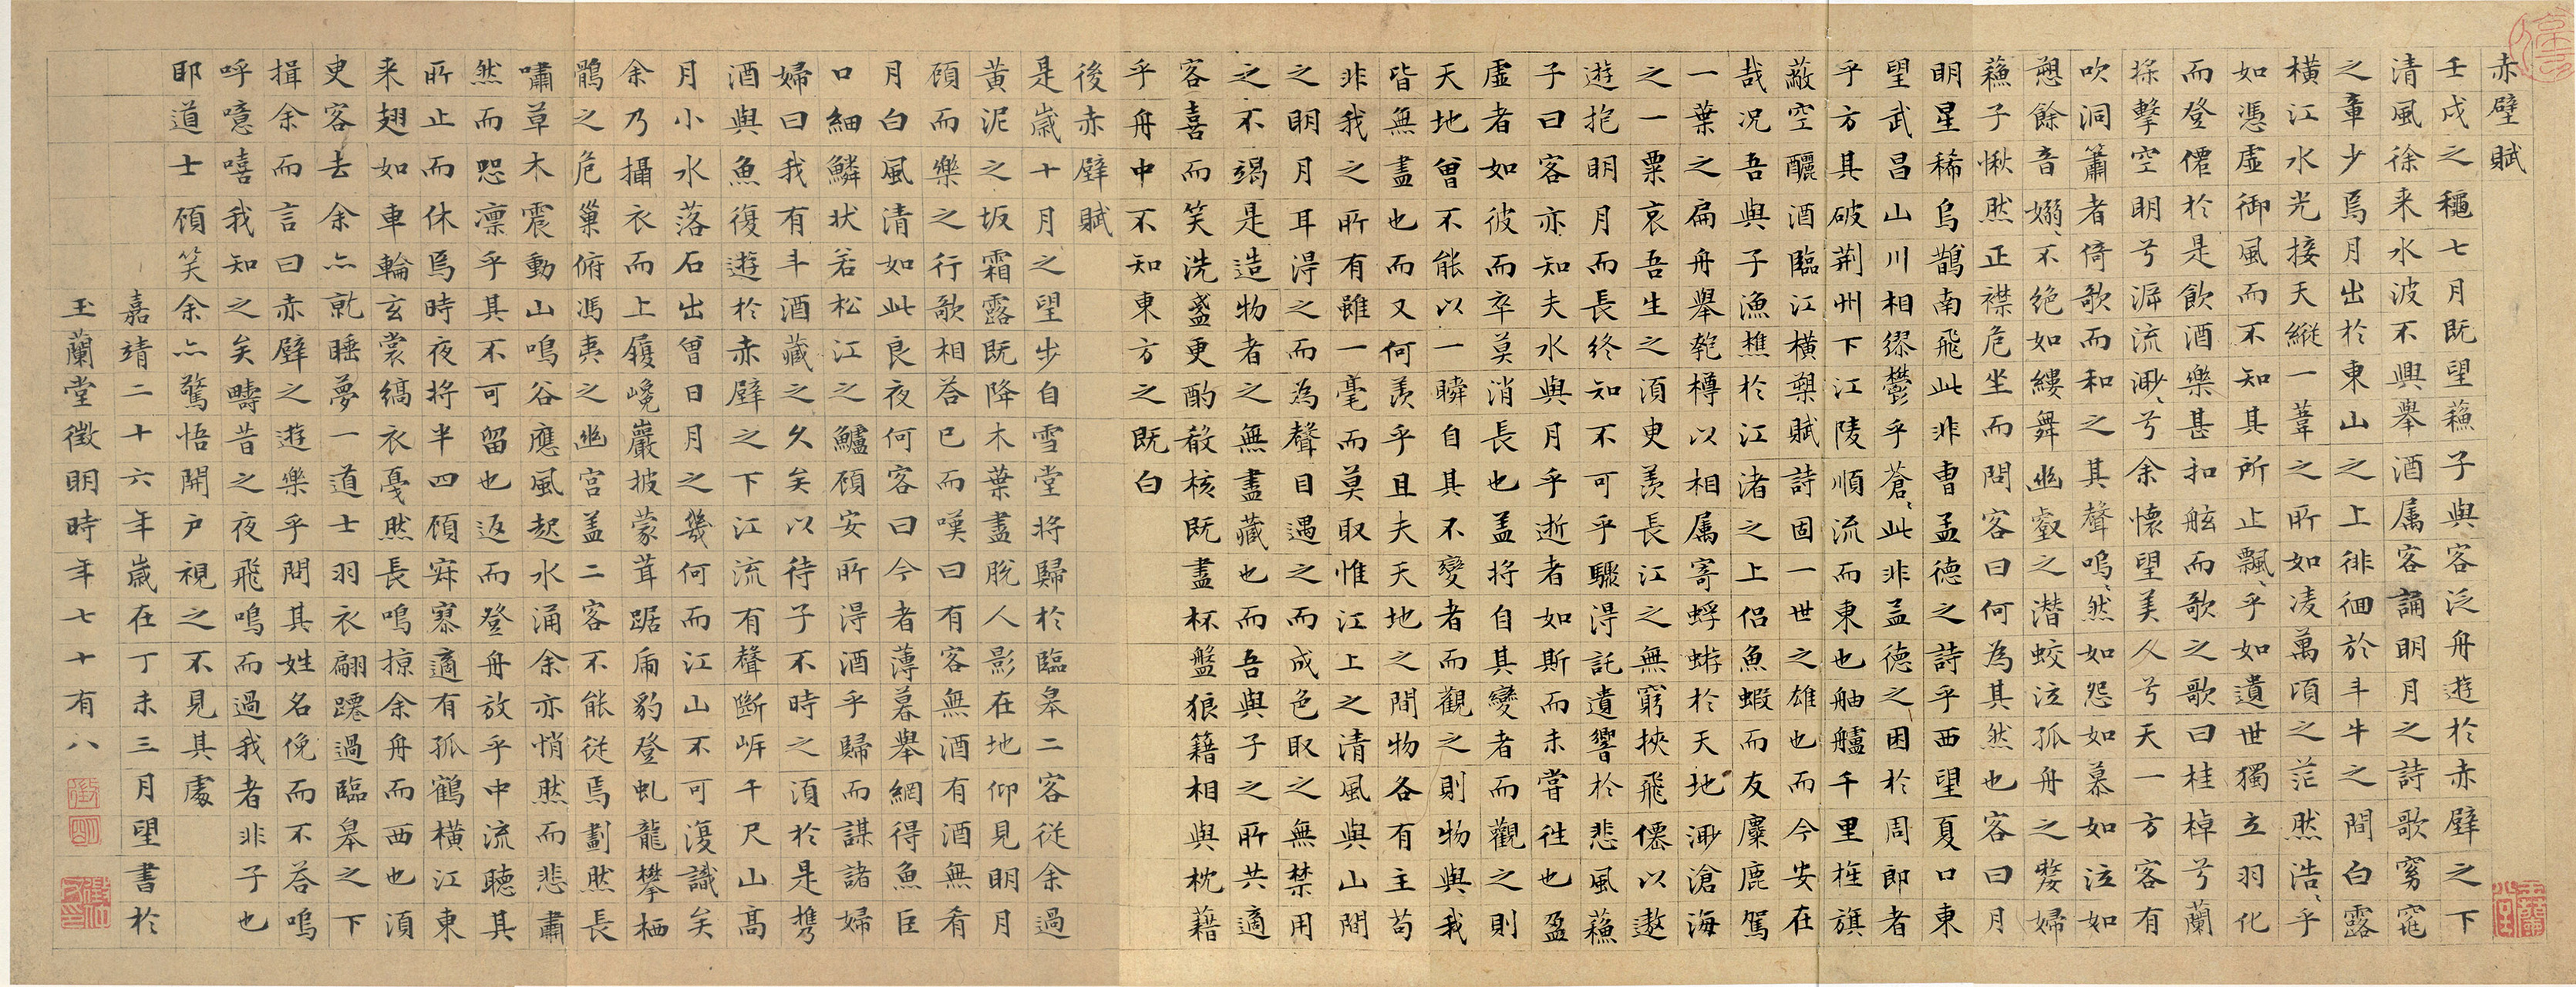 赤壁賦
壬戌之穐七月既望蘓子與客泛舟遊於赤壁之下
清風徐来水波不興舉酒属客誦明月之詩歌窈窕
之章少焉月出於東山之上徘徊於斗牛之間白露
橫江水光接天縱一葦之所如凌萬頃之茫然浩〻乎
如憑虛御風而不知其所止飄〻乎如遺世獨立羽化
而登僊於是飲酒樂甚扣舷而歌之歌曰桂棹兮蘭
槳擊空明兮泝流渺〻兮余懷望美人兮天一方客有
吹洞簫者倚歌而和之其聲嗚〻然如怨如慕如泣如
愬餘音嫋〻不絕如縷舞幽壑之潛蛟泣孤舟之嫠婦
蘓子愀然正襟危坐而問客曰何為其然也客曰月
明星稀烏鵲南飛此非曹孟德之詩乎西望夏口東
望武昌山川相繆鬱乎蒼〻此非孟德之困於周郎者
乎方其破荊州下江陵順流而東也舳艫千里旌旗
蔽空釃酒臨江橫槊賦詩固一世之雄也而今安在
哉况吾與子漁樵於江渚之上侶魚蝦而友麋鹿駕
一葉之扁舟舉匏樽以相属寄蜉蝣於天地渺滄海
之一粟哀吾生之須臾羨長江之無窮挾飛僊以遨
遊抱明月而長終知不可乎驟得託遺響於悲風蘓
子曰客亦知夫水與月乎逝者如斯而未嘗往也盈
虛者如彼而卒莫消長也盖將自其變者而觀之則
天地曾不能以一瞬自其不變者而觀之則物與我
皆無盡也而又何羨乎且夫天地之間物各有主苟
非我之所有雖一毫而莫取惟江上之清風與山間
之明月耳得之而為聲目遇之而成色取之無禁用
之不竭是造物者之無盡藏也而吾與子之所共適
客喜而笑洗盞更酌殽核既盡杯盤狼籍相與枕藉
乎舟中不知東方之既白
後赤壁賦
是歲十月之望步自雪堂將歸於臨皋二客從余過
黃泥之坂霜露既降木葉盡脫人影在地仰見明月
顧而樂之行歌相荅已而嘆曰有客無酒有酒無肴
月白風清如此良夜何客曰今者薄暮舉網得魚巨
口細鱗狀若松江之鱸顧安所得酒乎歸而謀諸婦
婦曰我有斗酒藏之久矣以待子不時之須於是攜
酒與魚復遊於赤壁之下江流有聲斷岸千尺山高
月小水落石出曾日月之幾何而江山不可復識矣
余乃攝衣而上履巉巖披蒙茸踞虎豹登虬龍攀栖
鶻之危巢俯馮夷之幽宮盖二客不能從焉劃然長
嘯草木震動山鳴谷應風起水涌余亦悄然而悲肅
然而恐凛乎其不可留也返而登舟放乎中流聽其
所止而休焉時夜將半四顧寂寥適有孤鶴橫江東
来翅如車輪玄裳縞衣戛然長鳴掠余舟而西也須
臾客去余亦就睡夢一道士羽衣翩躚過臨皋之下
揖余而言曰赤壁之遊樂乎問其姓名俛而不荅嗚
呼噫嘻我知之矣疇昔之夜飛鳴而過我者非子也
耶道士顧笑余亦驚悟開户視之不見其處
嘉靖二十六年歲在丁未三月望書於
玉蘭堂徵明時年七十有八
徵
明
玉蘭堂